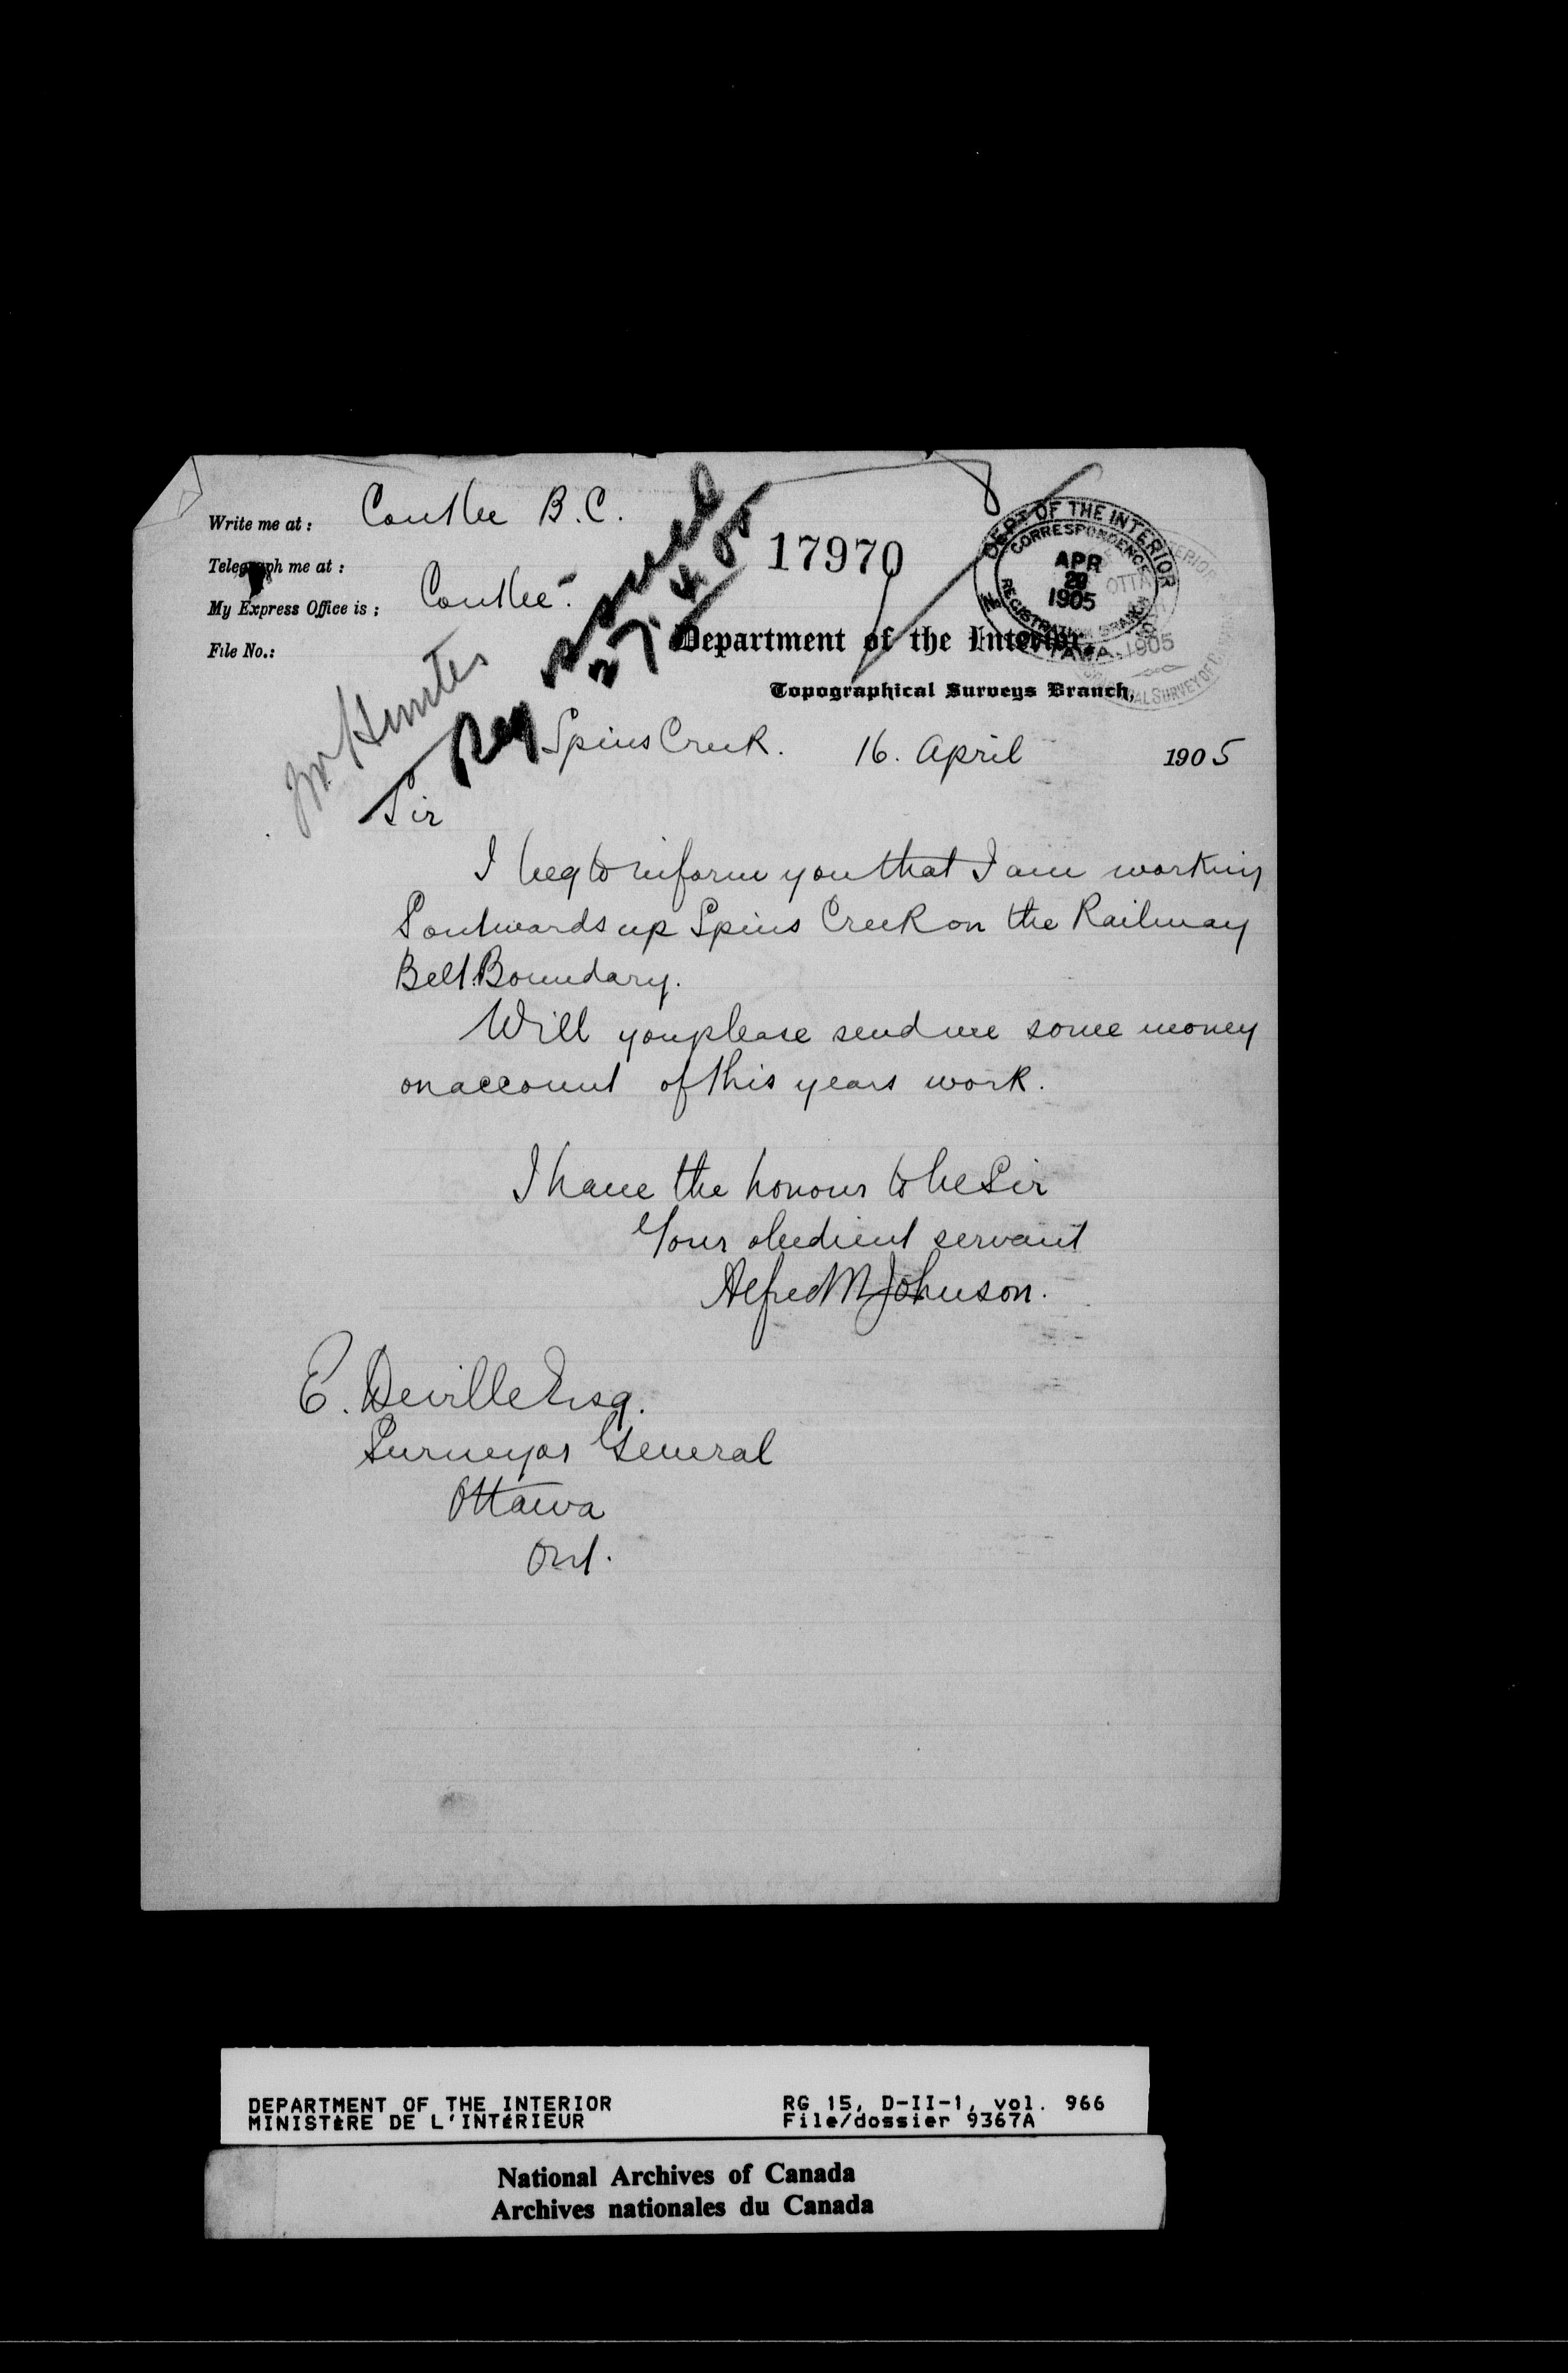 Write me at: Coutlee B.C.
Telegraph me at:
My Express Office is; Coutlee.
File No.:
17970
DEPT OF THE INTERIOR
CORRESPONDENCE
APR
20
1905
REGISTRATION BRANCH
OTTAWA
1905
Mr Hunter
27.4.05
Department of the Interior,
Topographical Surveys Branch,
Spius Creek. 16. April 1905
Sir
I beg to inform you that I am working
Southwards up Spius Creek on the Railway
Belt Boundary.
Will you please send me some money
on account of this years work.
I have the honour to be Sir
Your obedient servant
Alfred M Johnson.
E. Deville Esq.
Surveyor General
Ottawa
Ont.
DEPARTMENT OF THE INTERIOR RG 15, D-II-1, vol. 966
MINISTÈRE DE L'INTÉRIEUR File/dossier 9367A
National Archives of Canada
Archives nationales du Canada